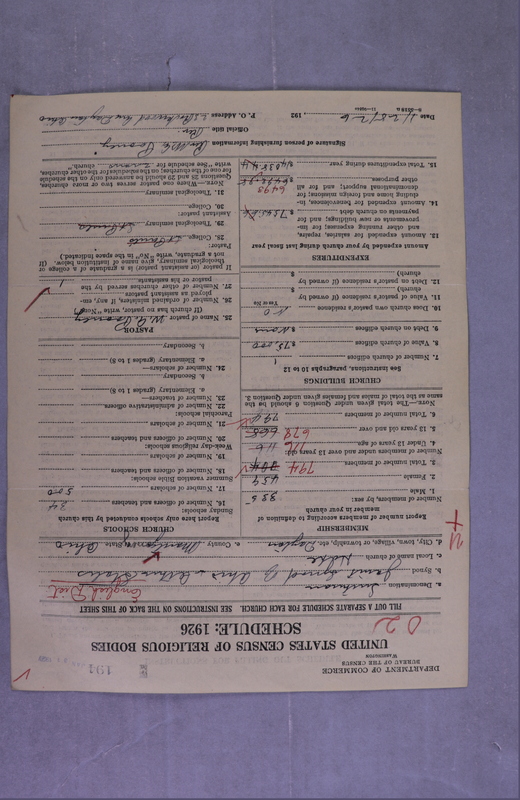 DEPARTMENT OF COMMERCE
BUREAU OF THE CENSUS
WASHINGTON
194
UNITED STATES CENSUS OF RELIGIOUS BODIES
SCHEDULE: 1926
02
FILL OUT A SEPARATE SCHEDULE FOR EACH CHURCH. SEE INSTRUCTIONS ON THE BACK OF THIS SHEET
a. Denomination Lutheran English Dist
b. Synod Joint Synod of Ohio & Other States
c. Local name of church
d. City, town, village, or township, etc. Dayton e. County Montgomery f. State Ohio
MEMBERSHIP
Report number of members according to definition of member in your church
Number of members, by sex:
1. Male 335
2. Female 459
3. Total number of members 794
Number of members under and over 13 years old:
4. Under 13 years of age 116
5. 13 years old and over 678
6. Total number of members 794
NOTE.—The total given under Question 6 should be the same as the total of males and females given under Question 3.
CHURCH BUILDINGS
See instructions, paragraphs 10 to 12
7. Number of church edifices 1
8. Value of church edifices $75,000
9. Debt on church edifices $ None
10. Does church own pastor's residence No
Yes or No
11. Value of pastor's residence (if owned by church) $
12. Debt on pastor's residence (if owned by church) $
EXPENDITURES
Amount expended by your church during last fiscal year
13. Amount expended for salaries, repairs, and other running expenses; for improvements or new building; and for payments on church debt
14. Amount expended for benevolences, including home and foreign missions; for denominational support; and for all other purposes 6493
15. Total expenditures during year
CHURCH SCHOOLS
Report here only schools conducted by this church
Sunday schools:
16. Number of officers and teachers 34
17. Number of scholars 500
Summer vacation Bible schools:
18. Number of officers and teachers
19. Number of scholars
Week-day religious schools:
20. Number of officers and teachers
21. Number of scholars
Parochial schools:
22. Number of administrative officers
23. Number of teachers—
a. Elementary (grades 1 to 8)
b. Secondary
24. Number of scholars—
a. Elementary (grades 1 to 8)
b. Secondary
PASTOR
25. Name of pastor
(If church has no pastor, write "None")
26. Number of ordained ministers, if any, employed as assistant pastors
27. Number of other churches served by the pastor or his assistants 1
If pastor (or assistant pastor) is a graduate of a college or theological seminary, give name of institution below. (If not a graduate, write "No" in the space indicated.)
Pastor:
28. College
29. Theological seminary
Assistant pastor:
30. College
31. Theological seminary
NOTE.—Where one pastor serves two or more churches, Questions 28 and 29 should be answered only on the schedule for one of the churches; on the schedules for the other churches, write "See schedule for church."
Signature of person furnishing information
Official title Rev.
Date 1/28/26, 192 P. O. Address Dayton Ohio